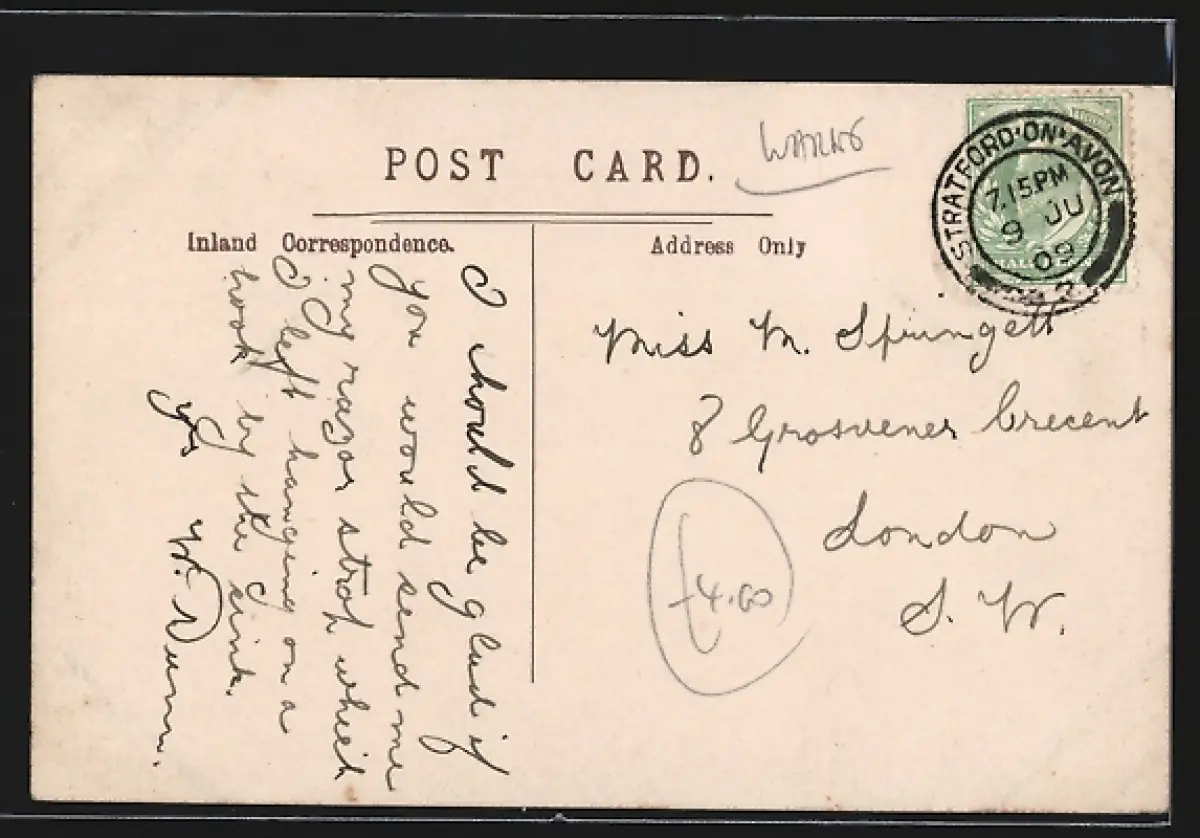 POST CARD.
WARKS
STRATFORD·ON·AVON
7.15 PM
9 JU
09
2
Inland Correspondence.
Address Only
I should be glad if
you would send me
my razor strop which
I left hanging on a
hook by the sink.
yrs W. Dunn.
Miss M. Springett
8 Grosvener Crecent
London
S. W.
£4.00